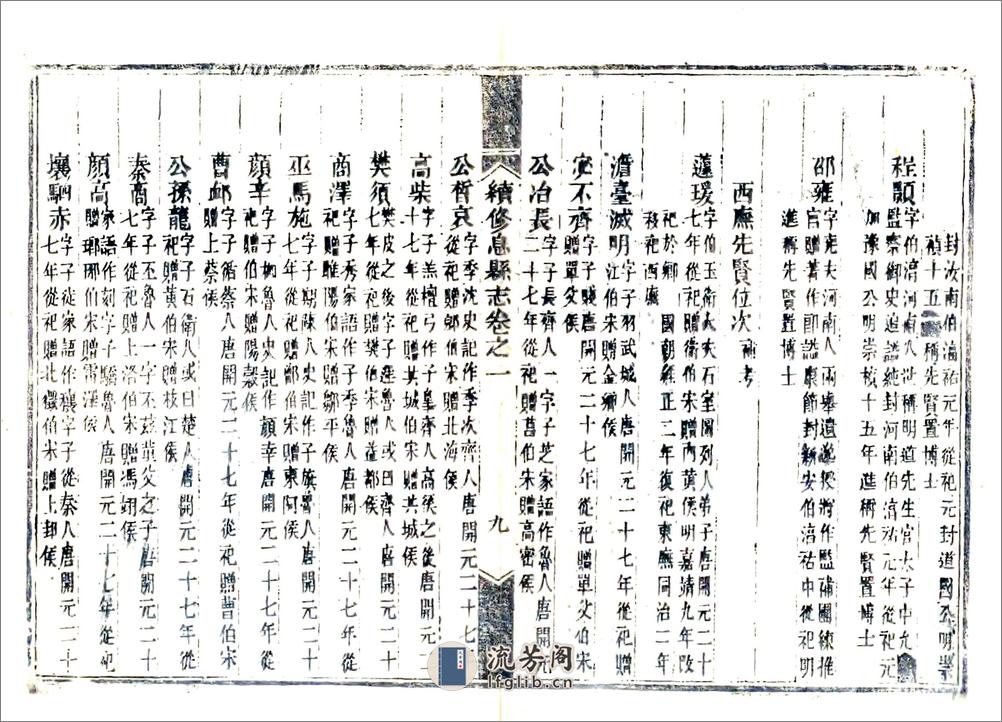 封汝南伯淳祐元年從祀元封道國公明崇
禎十五 稱先賢置博士
程顥
字伯淳河南人世稱明道先生官太子中允
監察御史追諡純封河南伯淳祐元年從祀元
加豫國公明崇禎十五年進稱先賢置博士
邵雍
字堯夫河南人兩舉遺逸授將作監
官贈著作郎諡康節封新安伯淳祐中從祀明
進稱先賢置博士
西廡先賢位次補考
蘧瑗
字伯玉衛大夫石室圖列人弟子唐開元二十
七年從祀贈衛伯宋贈內黃侯明嘉靖九年改
祀於鄉 國朝雍正二年復祀東廡同治二年
移祀西廡
澹臺滅明
字子羽武城人唐開元二十七年從祀贈
江伯宋贈金鄉侯
宓不齊
字子賤唐開元二十七年從祀贈單父伯宋
贈單父侯
公冶長
字子長齊人一字子芝家語作魯人唐開元
二十七年從祀贈莒伯宋贈高密侯
續修息縣志卷之一
九
公皙哀
字季沈史記作季次齊人唐開元二十七
從祀贈郳伯宋贈北海侯
高柴
字子羔檀弓作子皋齊人高傒之後唐開元二
十七年從祀贈共城伯宋贈共城侯
樊須
樊皮之後字子遲魯人或曰齊人唐開元二十
七年從祀贈樊伯宋贈益都侯
商澤
字子秀家語作子季魯人唐開元二十七年從
祀贈睢陽伯宋贈鄒平侯
巫馬施
字子期陳人史記作子旗魯人唐開元二十
七年從祀贈鄫伯宋贈東阿侯
顏辛
字子柳魯人史記作顏幸唐開元二十七年從
祀贈蕭伯宋贈陽穀侯
曹䘏
字子循蔡人唐開元二十七年從祀贈曹伯宋
贈上蔡侯
公孫龍
字子石衛人或曰楚人唐開元二十七年從
祀贈黃伯宋贈枝江侯
秦商
字子丕魯人一字不茲堇父之子唐開元二十
七年從祀贈上洛伯宋贈馮翊侯
顏高
家語作刻字子驕魯人唐開元二十七年從祀
贈瑯琊伯宋贈雷澤侯
壤駟赤
字子徒家語作穰字子從秦人唐開元二十
七年從祀贈北徵伯宋贈上邽侯
流芳阁
lfglib.cn